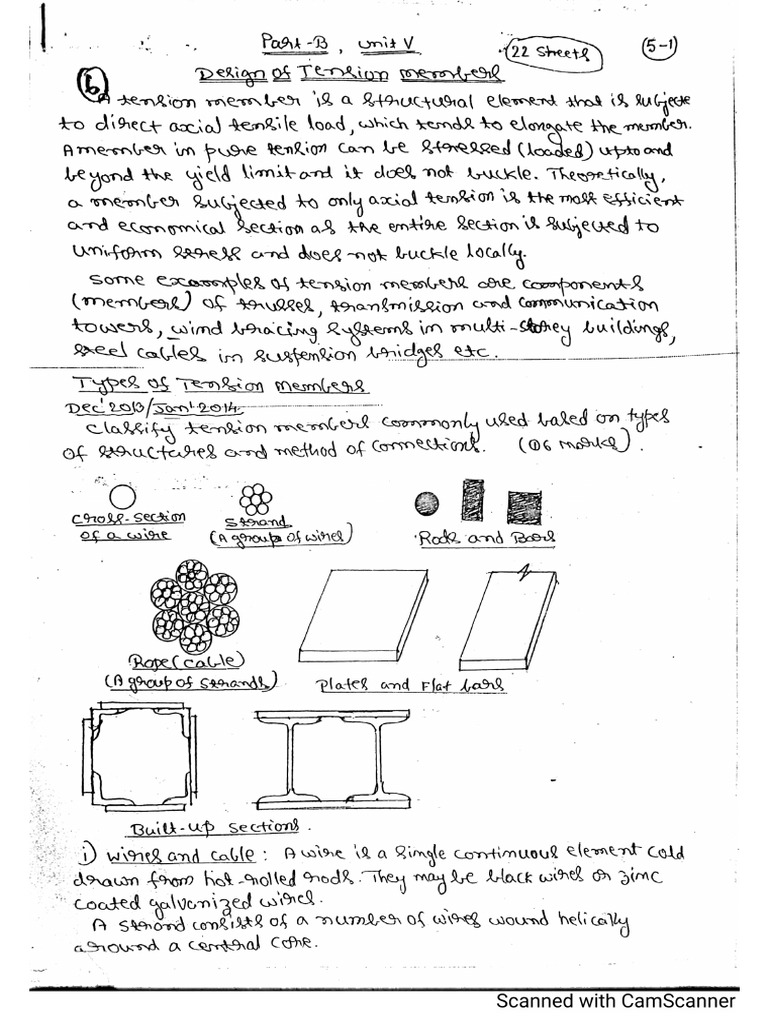 Part-B, Unit V
22 Sheets
5-1
6
Design of Tension members
A tension member is a structural element that is subjecte
to direct axial tensile load, which tends to elongate the member.
A member in pure tension can be stressed (loaded) upto and
beyond the yield limit and it does not buckle. Theoretically,
a member subjected to only axial tension is the most efficient
and economical section as the entire section is subjected to
uniform stress and does not buckle locally.
Some examples of tension members are components
(members) of trusses, transmission and communication
towers, wind bracing systems in multi-storey buildings,
steel cables in suspension bridges etc.
Types of Tension members
Dec'2013/Jan'2014
Classify tension members commonly used based on types
of structures and method of connections. (06 marks).
Cross-section
of a wire
Strand
(A group of wires)
Rods and Bars
Rope (cable)
(A group of strands)
Plates and Flat bars
Built-up sections.
i) wires and cable: A wire is a single continuous element cold
drawn from hot-rolled rods. They may be black wires or zinc
coated galvanized wires.
A strand consists of a number of wires wound helically
around a central core.
Scanned with CamScanner